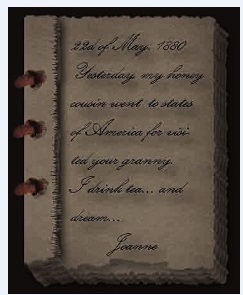 22d of May, 1880
Yesterday my honey
cousin went to states
of America for visi-
ted your granny.
I drink tea... and
dream...
Joanne